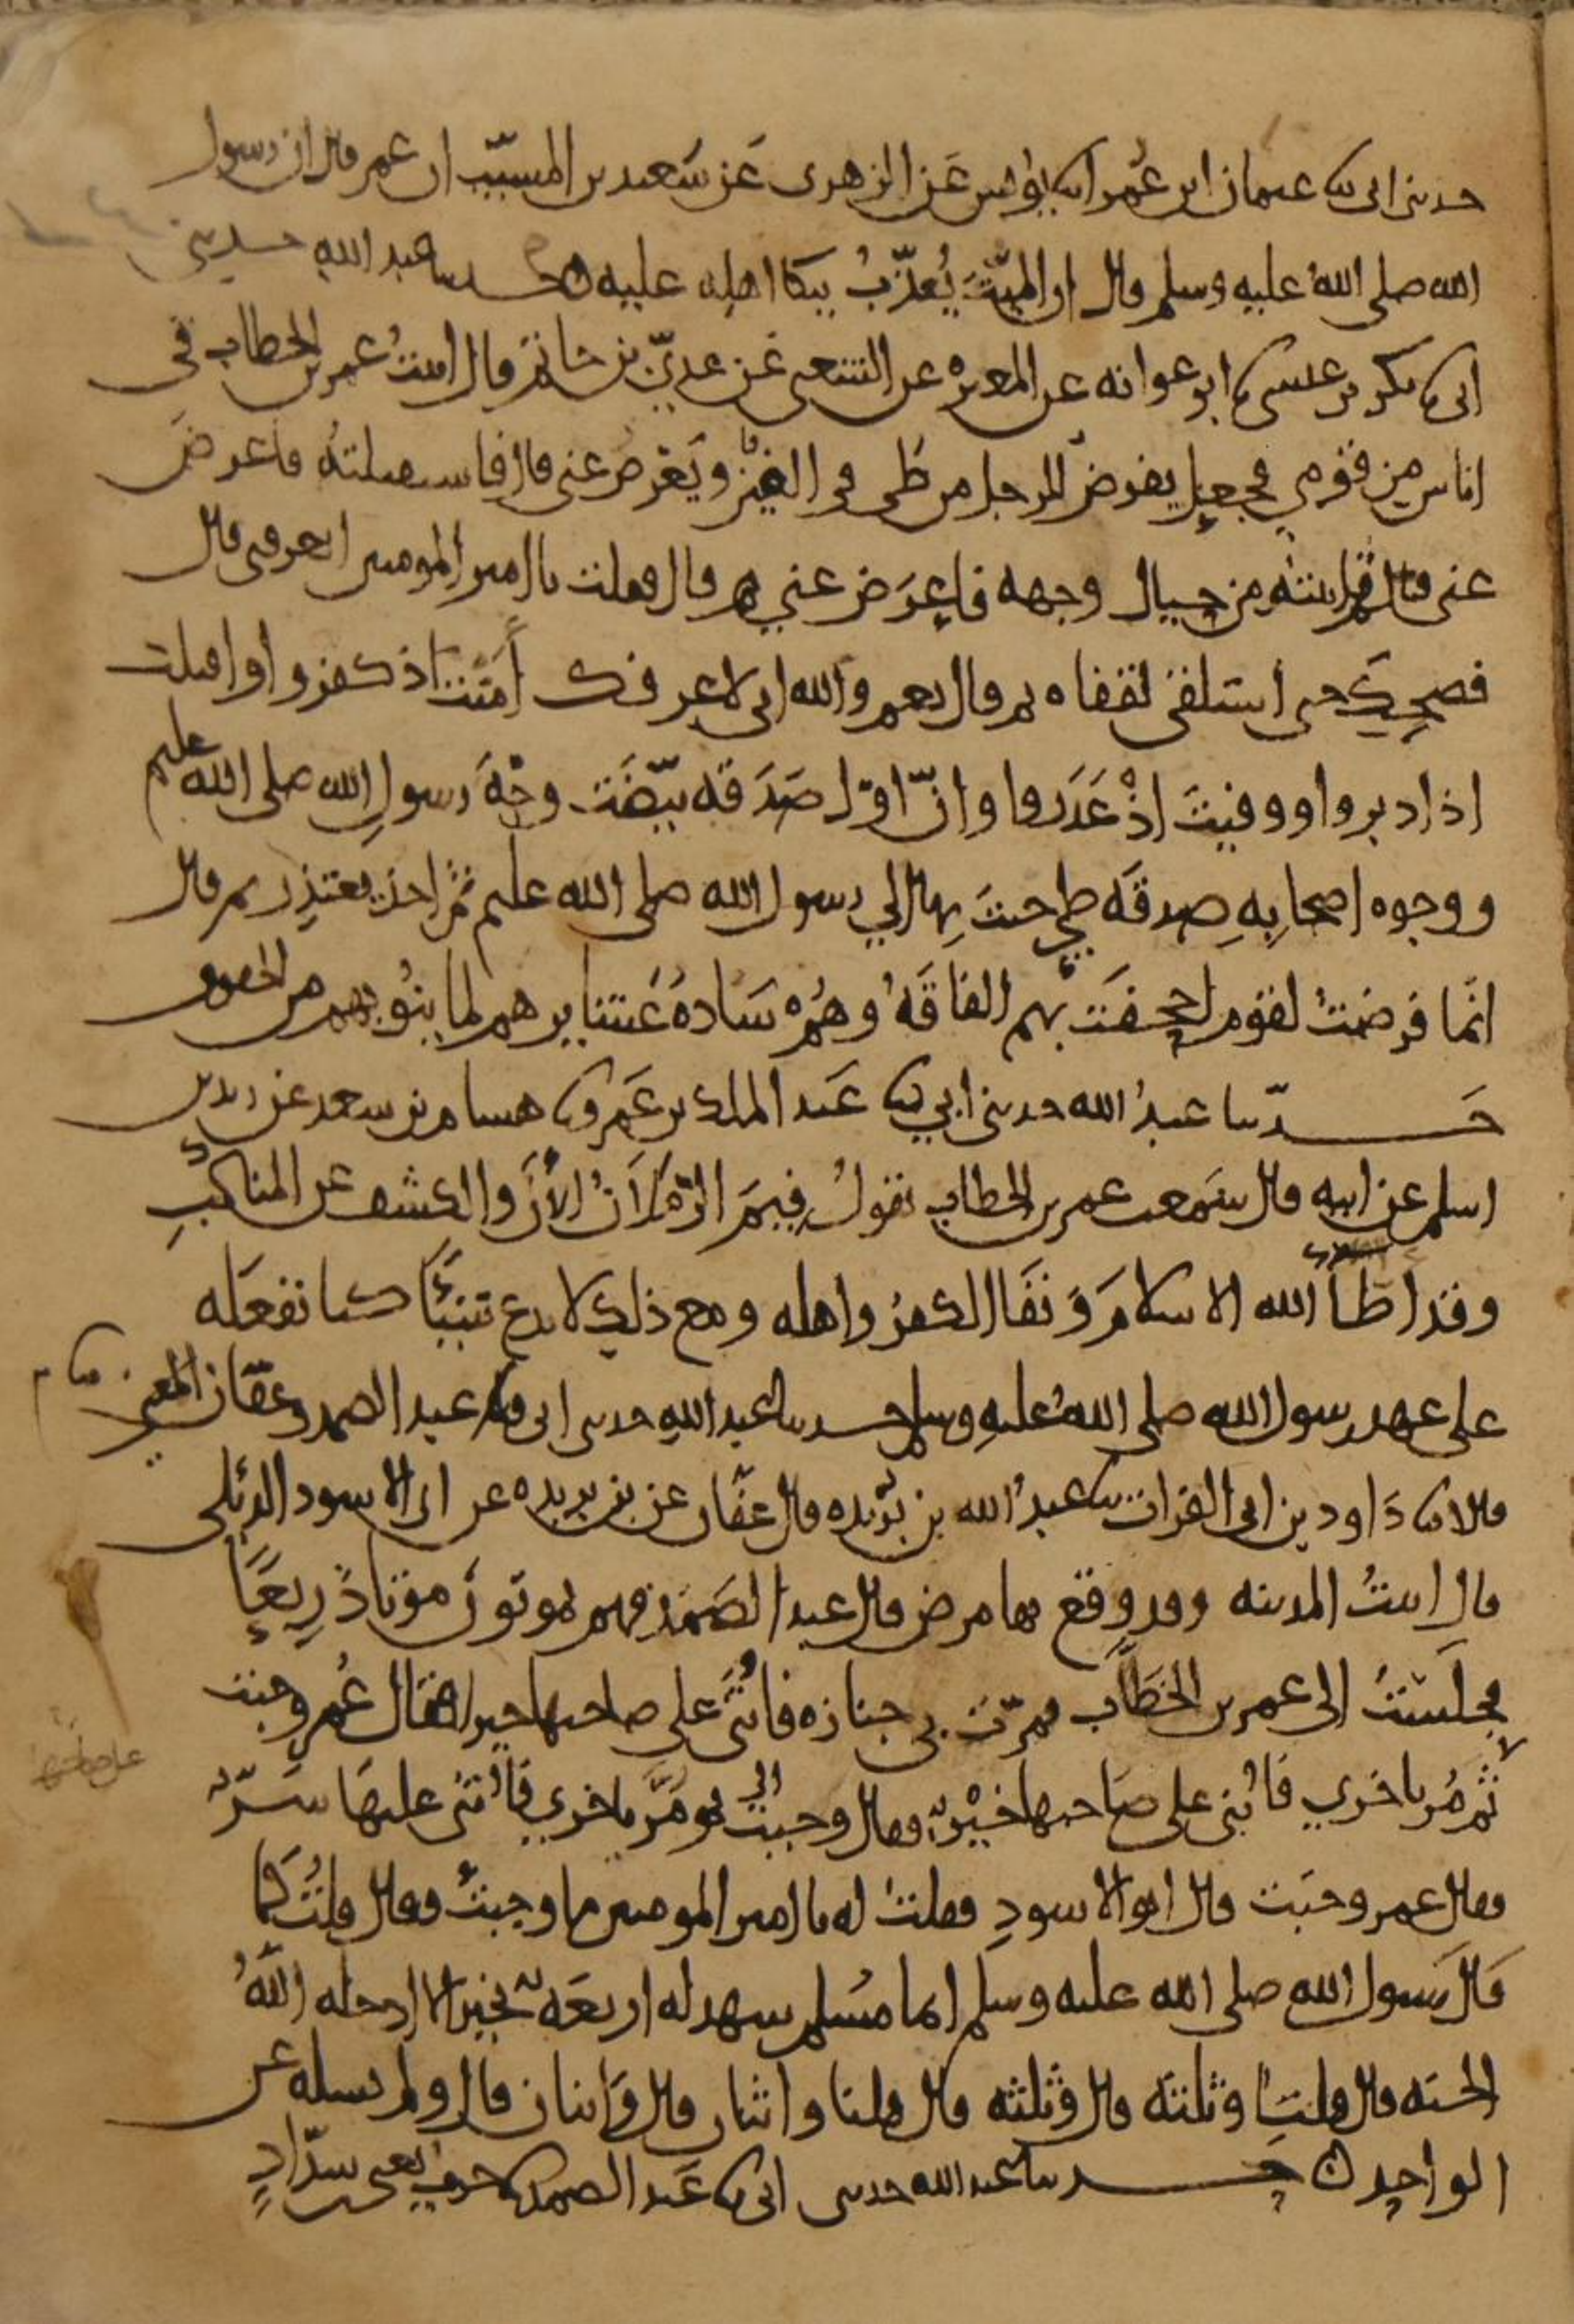 حدثنى ابى ثنا عثمان ابن عُمر انا يونس عَن الزهرى عَن سَعيد بن المسيّب ان عمر قال ان رسول
الله صلى اللهُ عليه وسلم قال ان الميّتَ يُعذّبُ ببكا اهله عليه ه حدثنا عبد الله حدثنى
ابى ثنا بكر بن عيسى ثنا ابو عوانه عن المغيره عن الشعبى عَن عدىّ بن حاتم قال اتيتُ عمر بن الخطاب فى
اناس من قومي فجعل يفرض للرجل من طى فى الفين ويَعْرض عنى قال فاستقبلتهُ فاعرضَ
عنى قال ثم اتيته من حيال وجهه فاعرَض عني قال فقلت يا امير المومنين اتعرفنى قال
فضحِكَ حتى استلقى لقفاه ثم قال نعم والله انى لاعرفك اَمَنْتَ اذ كفروا واقبلت
اذ ادبروا ووفيتَ اذْ غَدَروا وانّ اوّل صَدَقه بيّضَت وجْهَ رسولِ الله صلى الله عليه
ووجوه اصحابِهِ صدقَه طيٍ جئتَ بها الي رسول الله صلى الله عليه ثمّ اخذ يعتذِر ثم قال
انّما فرضتُ لقوم اجحفَت بهم الفاقَهُ وهُمْ سَادةُ عَشايرهم لما ينُوبهم من الحقوق
حَدّثنا عبدُ الله حدثنى ابي ثنا عَبد الملك بن عَمرو ثنا هشام بن سعد عَن زيد بن
اسلم عن ابيه قال سَمعت عمر بن الخطاب يقولُ فِيمَ الرّمَلاَنُ الأنَ والكشف عن المناكبِ
وقد اطأ الله الاسلامَ وَنفَا الكفرُ واهله ومع ذلك لا ندع شيئًا كنا نفعَله
على عهد رسول الله صلى اللهُ عليهِ وسلم حدثنا عبد اللهِ حدثنى ابى ثنا عبد الصمد وعفّان المعنى
قالا ثنا دَاود بن ابى الفرات ثنا عبدُ الله بن بُرَيده قال عفّان عن بن بريده عن ابى الاسود الدئلى
قال اتيتُ المدينه وقد وقع بها مرض قال عبد الصَمَد فهم يموتونَ موتا ذَريعًا
فجلَسْتُ الى عمر بن الخَطّاب فمرّت بى جنازه فاُثنَى على صاحبها خيرا فقال عُمر وجبت
ثم مُر باخري فاُثنى على صَاحبها خيْرٌ فقال وجبتْ ثم مُرَّ باخري فاُثنى عليهَا شَرٌّ
فقال عمر وجبَت قال ابو الاسودِ فقلتُ له يا امير المومنين ما وجبتْ فقال قلتُ كَما
قَالَ رَسول الله صلى الله عليه وسلم ايما مُسْلم شهد له اربعَهٌ بخير الا ادخله اللهُ
الجنه قال قلنَا وثلثة قال وثلثه قال قلنا واثنان قال وَاثنان قال ولم نسله عن
الواحِد ه حدثنا عبد الله حدثنى ابى ثنا عَبد الصمد ثنا حرب يعنى بن شدّادٍ